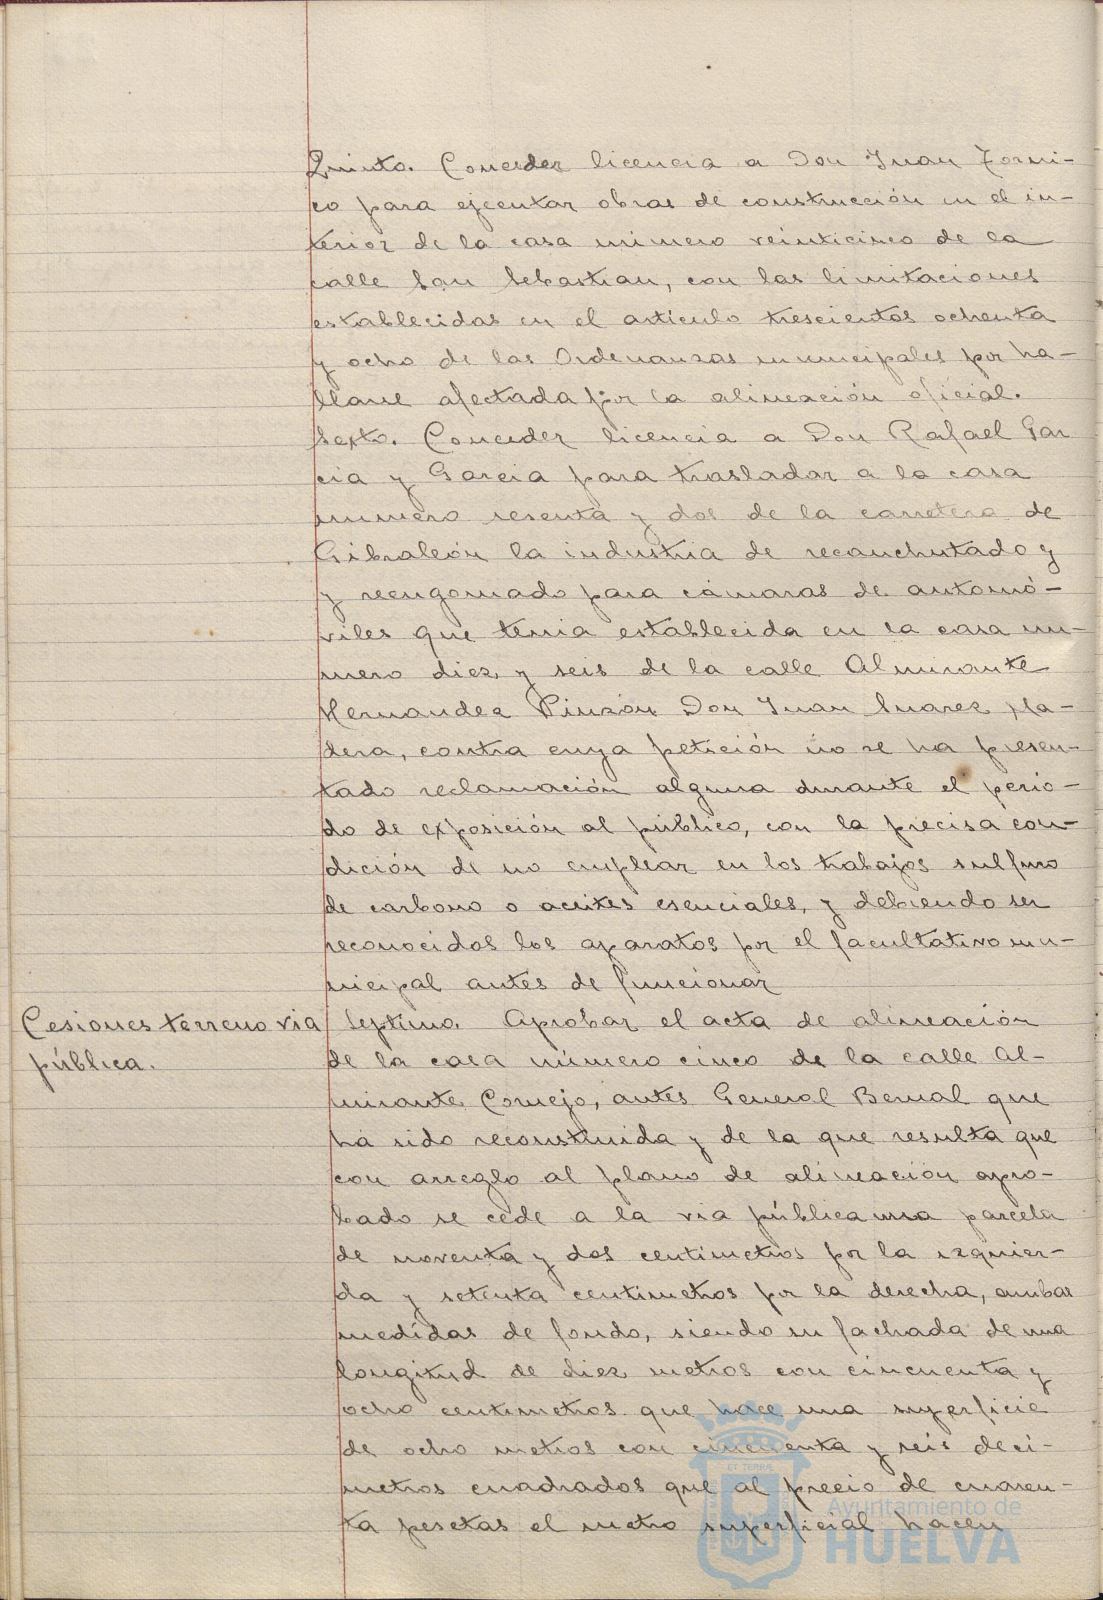 Quinto. Conceder licencia a Don Juan Torni-
co para ejecutar obras de construcción en el in-
terior de la casa número veinticinco de la
calle San Sebastian, con las limitaciones
establecidas en el artículo trescientos ochenta
y ocho de las Ordenanzas municipales por ha-
llarse afectada por la alineación oficial.
Sexto. Conceder licencia a Don Rafael Gar
cia y Garcia para trasladar a la casa
numero sesenta y dos de la carretera de
Gibraleón la industria de recauchutado y
y reengomado para cámaras de automó-
viles que tenia establecida en la casa nu-
mero diez y seis de la calle Almirante
Hernandez Pinzón Don Juan Suarez Ma-
dera, contra cuya petición no se ha presen-
tado reclamación alguna durante el perio-
do de exposición al público, con la precisa con-
dición de no emplear en los trabajos sulfuro
de carbono o aceites esenciales, y debiendo ser
reconocidos los aparatos por el facultativo mu-
nicipal antes de funcionar
Cesiones terreno via
pública.
Septimo. Aprobar el acta de alineación
de la casa número cinco de la calle Al-
mirante Cornejo, antes General Bernal que
há sido reconstruida y de la que resulta que
con arreglo al plano de alineación apro-
bado se cede a la via pública una parcela
de noventa y dos centimetros por la izquier-
da y setenta centimetros por la derecha, ambas
medidas de fondo, siendo su fachada de una
longitud de diez metros con cincuenta y
ocho centimetros que hace una superficie
de ocho metros con cincuenta y seis deci-
metros cuadrados que al precio de cuaren-
ta pesetas el metro superficial hacen
Ayuntamiento de
HUELVA